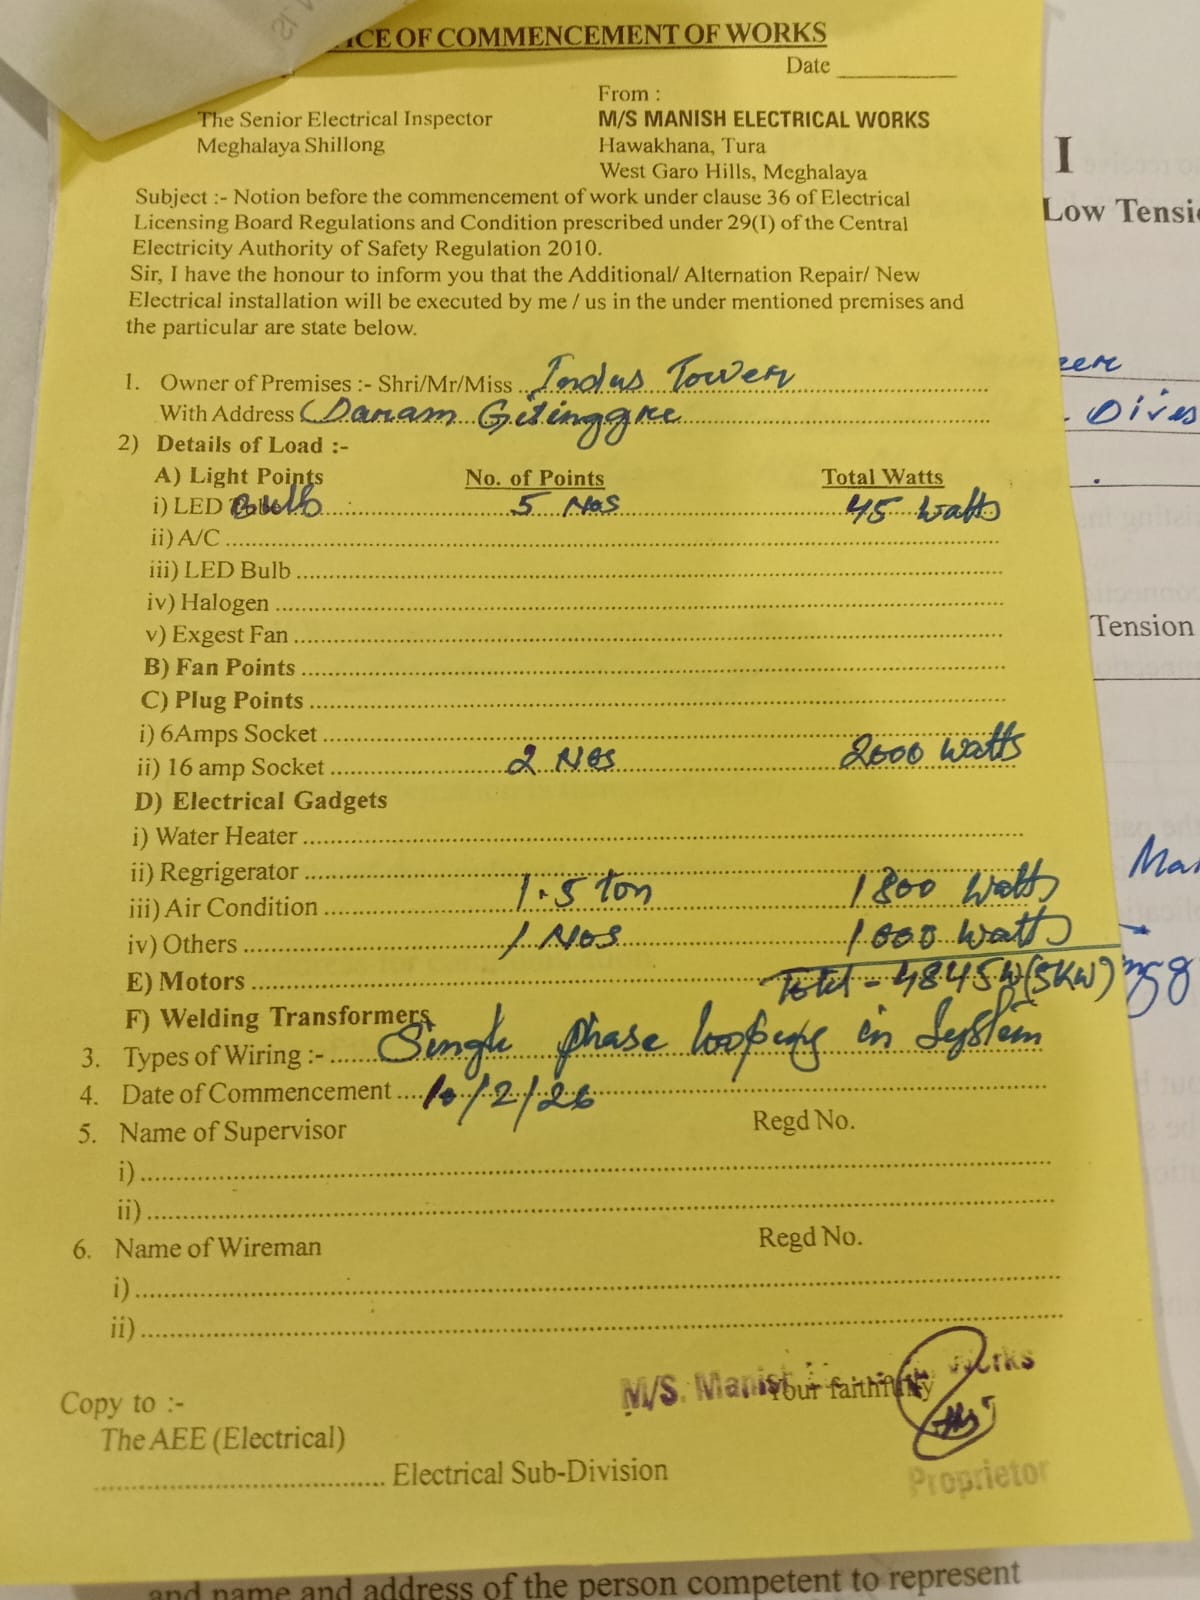 ICE OF COMMENCEMENT OF WORKS
Date
From :
The Senior Electrical Inspector
Meghalaya Shillong
M/S MANISH ELECTRICAL WORKS
Hawakhana, Tura
West Garo Hills, Meghalaya
Subject :- Notion before the commencement of work under clause 36 of Electrical
Licensing Board Regulations and Condition prescribed under 29(I) of the Central
Electricity Authority of Safety Regulation 2010.
Sir, I have the honour to inform you that the Additional/ Alternation Repair/ New
Electrical installation will be executed by me / us in the under mentioned premises and
the particular are state below.
1. Owner of Premises :- Shri/Mr/Miss Indus Tower
With Address (Danam Gitinggre
2) Details of Load :-
A) Light Points No. of Points Total Watts
i) LED Bulb 5 Nos 45 Watts
ii) A/C
iii) LED Bulb
iv) Halogen
v) Exgest Fan
B) Fan Points
C) Plug Points
i) 6Amps Socket
ii) 16 amp Socket 2 Nos 2000 Watts
D) Electrical Gadgets
i) Water Heater
ii) Regrigerator
iii) Air Condition 1.5 ton 1800 Watts
iv) Others 1 Nos 1000 Watts
E) Motors Total - 4845W (5KW)
F) Welding Transformers
3. Types of Wiring :- Single phase looping in System
4. Date of Commencement 10/2/26
5. Name of Supervisor Regd No.
i)
ii)
6. Name of Wireman Regd No.
i)
ii)
M/S. Manish Works
Your faithfully
Copy to :-
The AEE (Electrical)
Electrical Sub-Division
Proprietor
I
Low Tensi
Tension
and name and address of the person competent to represent